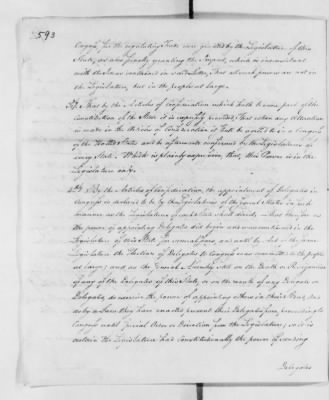 593
Congress for regulating Trade were granted by the Legislature of this
State, as also finally granting the Impost, which is inconsistent
with the Ideas contained in said Letter, that all such powers are not in
the Legislature, but in the people at large.
3d. That by the Articles of Confederation which hath become part of the
constitution of the State it is expressly provided, That when any Alteration
is made in the Articles of Confederation it shall be agreed to in a Congress
of the United States and be afterwards confirmed by the Legislatures of
every State. Which is plainly expressive, that this Power is in the
Legislature only.
4th. By the Articles of Confederation, the appointment of Delegates in
Congress is declared to be by the Legislatures of the several States in such
manner as the Legislature of each State shall direct — that therefore as
the power of appointing Delegates did begin and was continued in the
Legislature of this State for several years, and until by Act of the same
Legislature the Election of Delegates to Congress was committed to the people
at large; and as the General Assembly still on the Death or Resignation
of any of the Delegates of this State, or on the recall of any Delegate or
Delegates do exercise the power of appointing others in their Stead, and
as by a Law they have enacted prevent their Delegates from proceeding to
Congress until special Order or Direction from the Legislature; so it is
certain the Legislature has Constitutionally the power of sending
Delegates